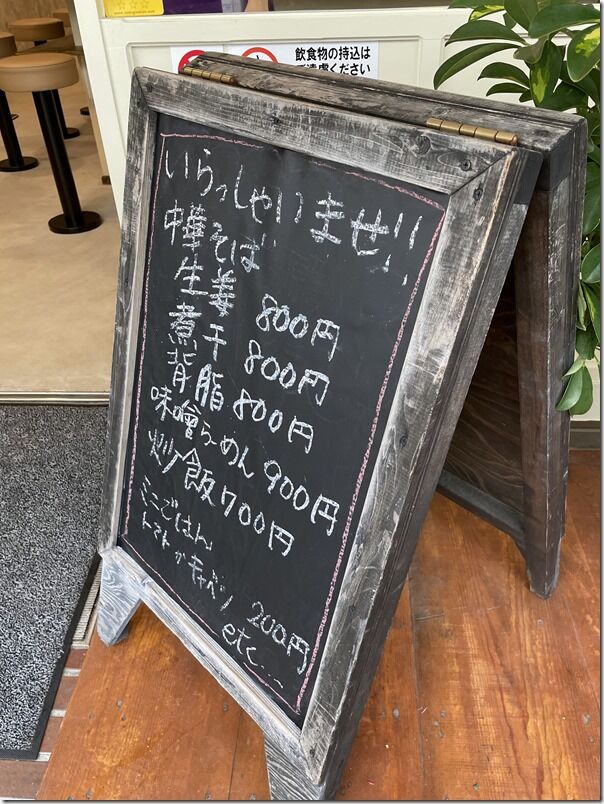 飲食物の持込は
ご遠慮ください
いらっしゃいませ!!
中華そば
生姜 800円
煮干 800円
背脂 800円
味噌らーめん 900円
炒飯 700円
ミニごはん
トマト or キャベツ 200円
etc...